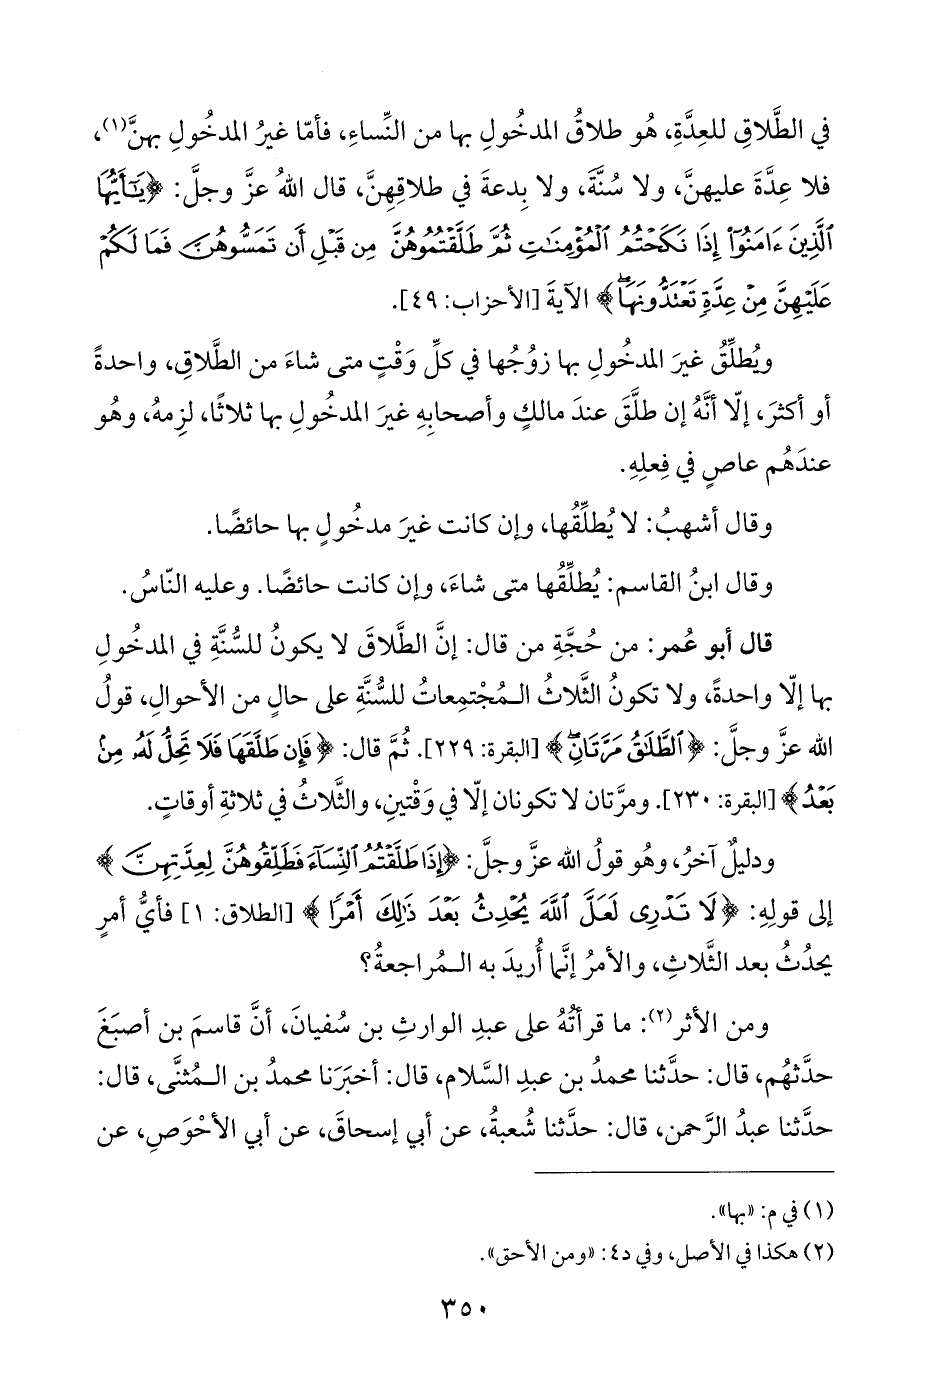 في الطَّلاقِ للعِدَّةِ، هُو طلاقُ المدخُولِ بها من النِّساءِ، فأمّا غيرُ المدخُولِ بهنَّ(١)،
فلا عِدَّةَ عليهنَّ، ولا سُنَّةَ، ولا بِدعةَ في طلاقِهِنَّ، قال اللهُ عزَّ وجلَّ: ﴿يَٰٓأَيُّهَا
ٱلَّذِينَ ءَامَنُوٓا۟ إِذَا نَكَحْتُمُ ٱلْمُؤْمِنَٰتِ ثُمَّ طَلَّقْتُمُوهُنَّ مِن قَبْلِ أَن تَمَسُّوهُنَّ فَمَا لَكُمْ
عَلَيْهِنَّ مِنْ عِدَّةٍ تَعْتَدُّونَهَا ۖ﴾ الآيةَ [الأحزاب: ٤٩].
ويُطلِّقُ غيرَ المدخُولِ بها زوُجُها في كلِّ وَقْتٍ متى شاءَ من الطَّلاقِ، واحدةً
أو أكثرَ، إلّا أنَّهُ إن طلَّقَ عندَ مالكٍ وأصحابِهِ غيرَ المدخُولِ بها ثلاثًا، لزِمهُ، وهُو
عندَهُم عاصٍ في فِعلِهِ.
وقال أشهبُ: لا يُطلِّقُها، وإن كانت غيرَ مدخُولٍ بها حائضًا.
وقال ابنُ القاسم: يُطلِّقُها متى شاءَ، وإن كانت حائضًا. وعليه النّاسُ.
قال أبو عُمر: من حُجَّةِ من قال: إنَّ الطَّلاقَ لا يكونُ للسُّنَّةِ في المدخُولِ
بها إلّا واحدةً، ولا تكونُ الثَّلاثُ الـمُجْتمِعاتُ للسُّنَّةِ على حالٍ من الأحوالِ، قولُ
الله عزَّ وجلَّ: ﴿ٱلطَّلَٰقُ مَرَّتَانِ ۖ﴾ [البقرة: ٢٢٩]. ثُمَّ قال: ﴿فَإِن طَلَّقَهَا فَلَا تَحِلُّ لَهُۥ مِنۢ
بَعْدُ﴾ [البقرة: ٢٣٠]. ومرَّتان لا تكونان إلّا في وَقْتينِ، والثَّلاثُ في ثلاثةِ أوقاتٍ.
ودليلٌ آخرُ، وهُو قولُ الله عزَّ وجلَّ: ﴿إِذَا طَلَّقْتُمُ ٱلنِّسَآءَ فَطَلِّقُوهُنَّ لِعِدَّتِهِنَّ﴾
إلى قولِهِ: ﴿لَا تَدْرِى لَعَلَّ ٱللَّهَ يُحْدِثُ بَعْدَ ذَٰلِكَ أَمْرًا﴾ [الطلاق: ١] فأيُّ أمرٍ
يحدُثُ بعد الثَّلاثِ، والأمرُ إنَّما أُريدَ به الـمُراجعةُ؟
ومن الأثر(٢): ما قرأتُهُ على عبدِ الوارثِ بن سُفيانَ، أنَّ قاسمَ بن أصبَغَ
حدَّثهُم، قال: حدَّثنا محمدُ بن عبدِ السَّلام، قال: أخبَرَنا محمدُ بن الـمُثنَّى، قال:
حدَّثنا عبدُ الرَّحمن، قال: حدَّثنا شُعبةُ، عن أبي إسحاقَ، عن أبي الأحْوَصِ، عن
(١) في م: «بها».
(٢) هكذا في الأصل، وفي د٤: «ومن الأحق».
٣٥٠